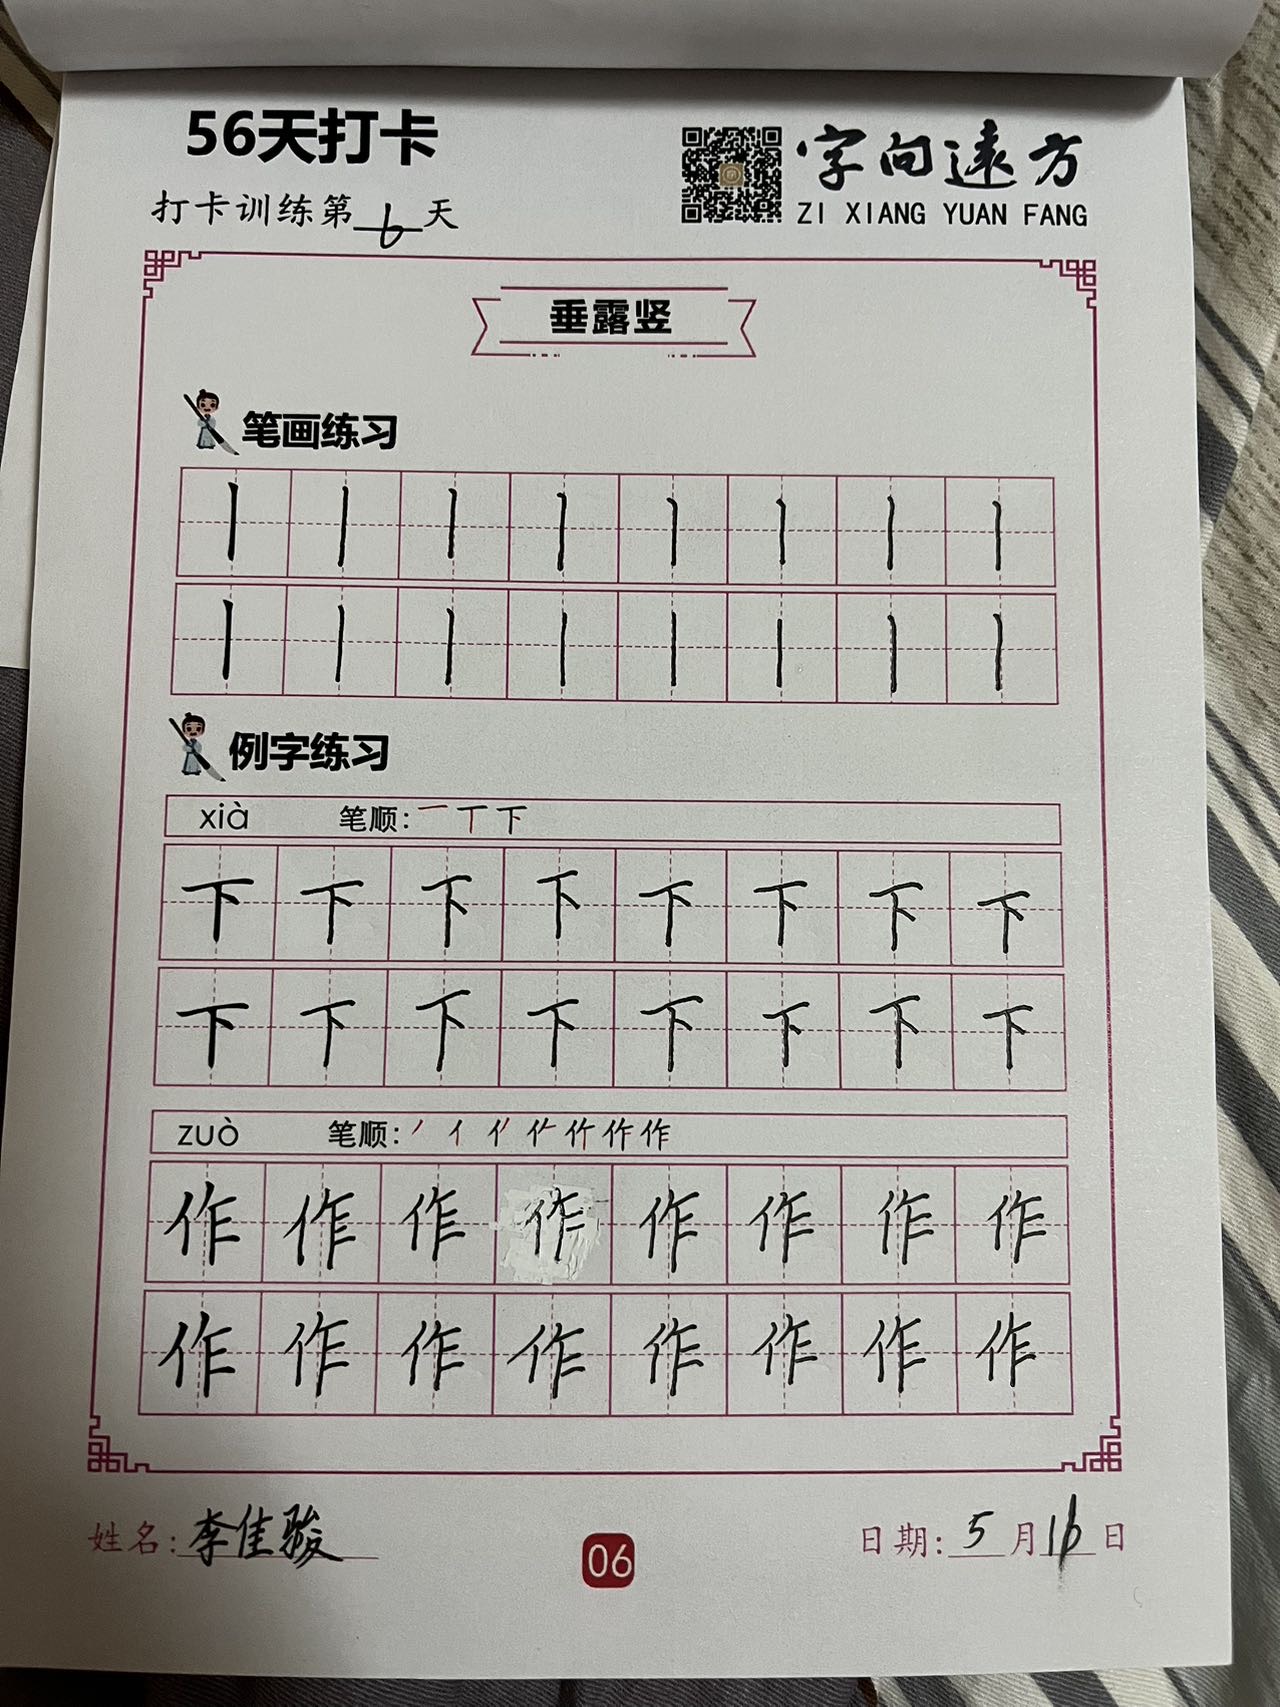 56天打卡
字向远方
打卡训练第6天
ZI XIANG YUAN FANG
垂露竖
笔画练习
丨丨丨丨丨丨丨丨
丨丨丨丨丨丨丨丨
例字练习
xià 笔顺: 一 丅 下
下下下下下下下下
下下下下下下下下
zuò 笔顺: 丿 亻 作 作
作作作作作作作作
作作作作作作作作
姓名: 李佳骏
06
日期: 5月16日